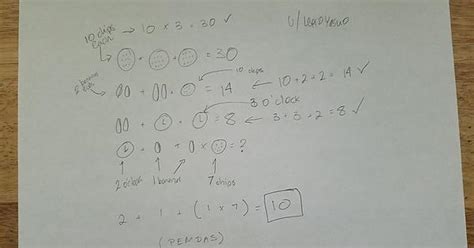 10 chips each → 10 x 3 = 30 ✓
+ + = 30
10 chips
+ + = 14 ← 10 + 2 + 2 = 14 ✓
3 O'clock
+ + = 8 ← 3 + 3 + 2 = 8 ✓
+ + x = ?
2 o'clock 1 banana 7 chips
2 + 1 + (1 x 7) = 10
(PEMDAS)